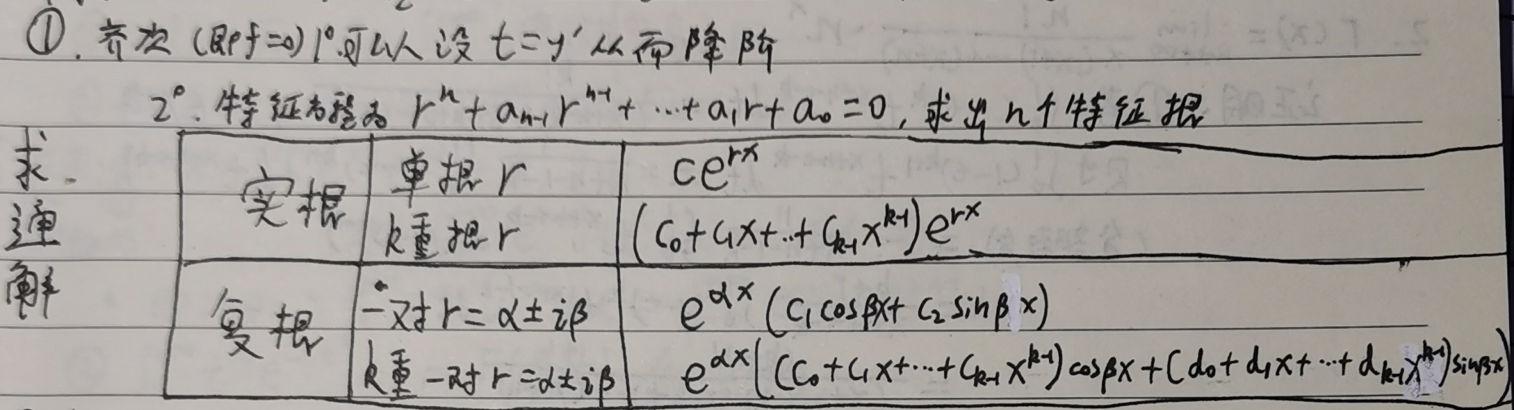 ①. 齐次 (即f=0) 1°可以设 t=y' 从而降阶
2°. 特征方程为 rⁿ + aₙ₋₁rⁿ⁻¹ + … + a₁r + a₀ = 0, 求出 n个特征根
求通解
实根 单根 r ce^{rx}
k重根 r (c₀+c₁x+…+c_{k-1}x^{k-1})e^{rx}
复根 一对 r=α±iβ e^{αx}(c₁cosβx+c₂sinβx)
k重一对 r=α±iβ e^{αx}((c₀+c₁x+…+c_{k-1}x^{k-1})cosβx+(d₀+d₁x+…+d_{k-1}x^{k-1})sinβx)